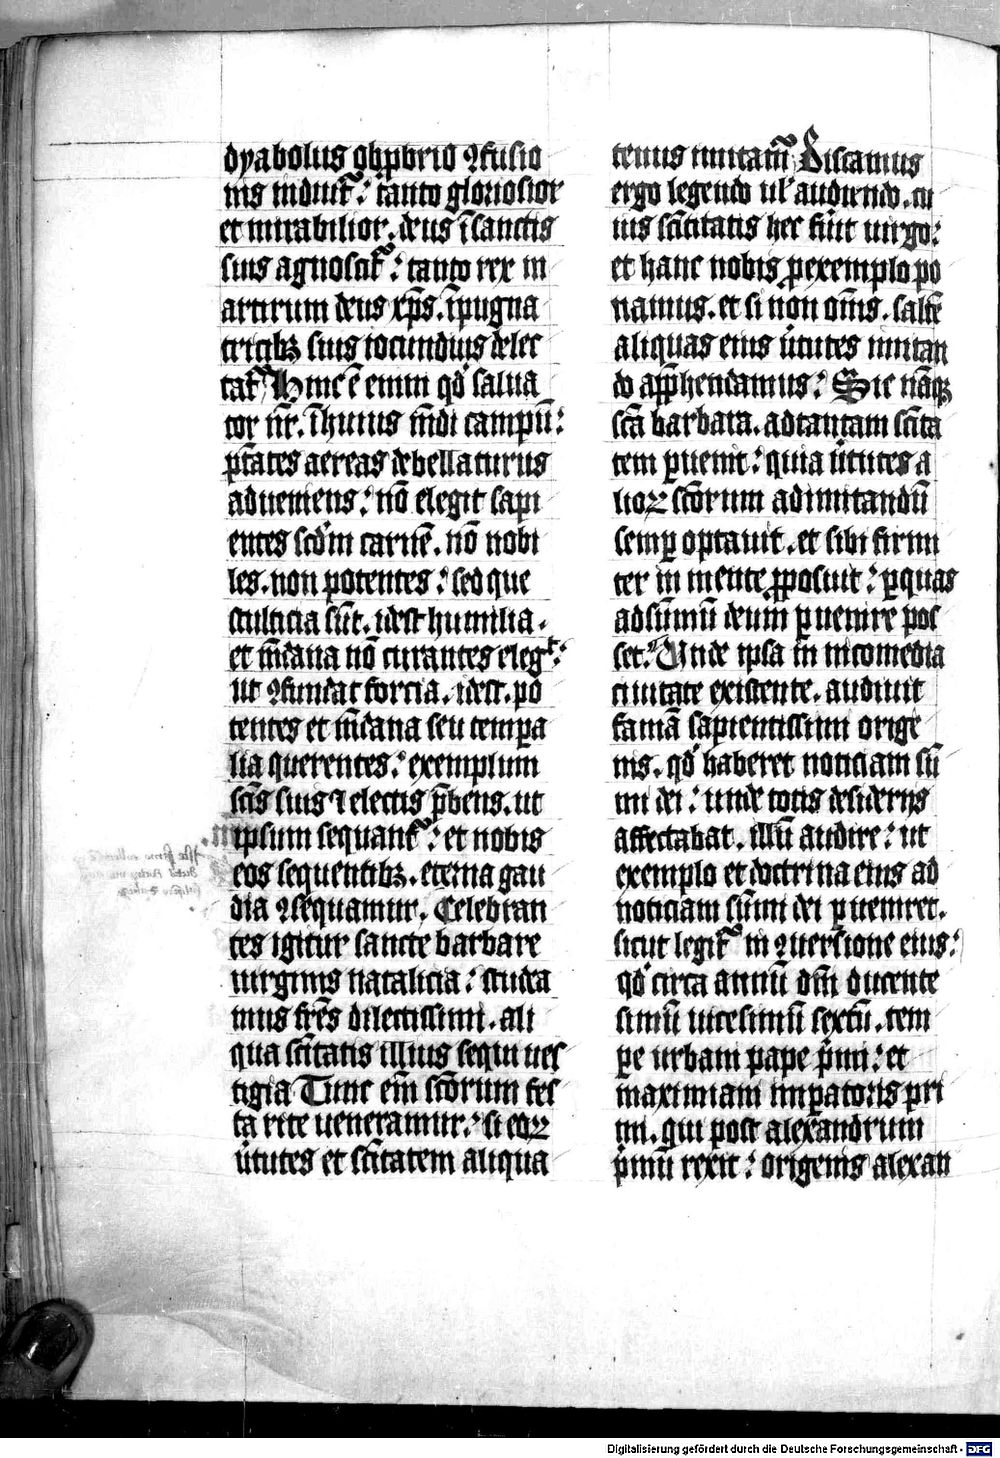 dyabolus obꝓbrio ꝯfusio
nis induit᷑: tanto gloriosior
et mirabilior. deus ī sanctis
suis agnoscit᷑: tanto rex m
artirum deus xp̄s. īpugna
tricibꝫ suis iocundius delec
tat᷑ Hinc ē enim qd̓ salua
tor nr̄. ī huius mūdi campū:
ptātes aereas debellaturus
adueniens: nō elegit sapi
entes scd̓m carnē. nō nobi
les. non potentes: sed que
stulticia sūt. idest humilia.
et mūdana nō curantes elegᷓt:
ut ꝯfundat forcia. idest. po
tentes et mūdana seu tempa
lia querentes: exemplum
scīs suis ⁊ electis p̄bens. ut
ipsum sequant᷑: et nobis
eos sequentibꝫ. eterna gau
dia ꝯsequamur. Celebran
tes igitur sancte barbare
uirginis natalicia: studea
mus frēs dilectissimi. ali
qua scītatis illius sequi ues
tigia Tunc em̄ scōrum fes
ta rite ueneramur: si eoꝝ
ūtutes et scītatem aliqua
tenus imitam᷑ Discamus
ergo legendo ul̓ audiendo. cu
ius scītitatis hec fūit uirgo:
et hanc nobis ꝓ exemplo po
namus. et si non om̄s. saltē
aliquas eius ūtutes imitan
do app̄hendamus: Sic nāqꝫ
scā barbara. ad tantam scīta
tem ꝑuenit: quia ūtutes a
lioꝝ scōrum ad imitandū
semꝑ optauit. et sibi firmi
ter in mente ꝓposuit: ꝑ quas
ad sūmū deum ꝑuenire pos
set: Unde ipsa in nicomedia
ciuitate existente. audiuit
famā sapientissimi orige
nis. qd̓ haberet noticiam sū
mi dei: unde totis desiderijs
affectabat. illū audire: ut
exemplo et doctrina eius ad
noticiam sūmi dei ꝑueniret.
sicut legit᷑ in ꝯuersione eius:
qd̓ circa annū dn̄i ducente
simū uicesimū sextū. tem
pe urbani pape p̄mi: et
maximiani impatoris pri
mi. qui post alexandrum
p̄mū rexit: origenis alexan
Digitalisierung gefördert durch die Deutsche Forschungsgemeinschaft - DFG